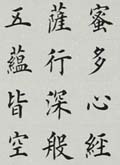 蜜多心經
薩行深般
五蘊皆空